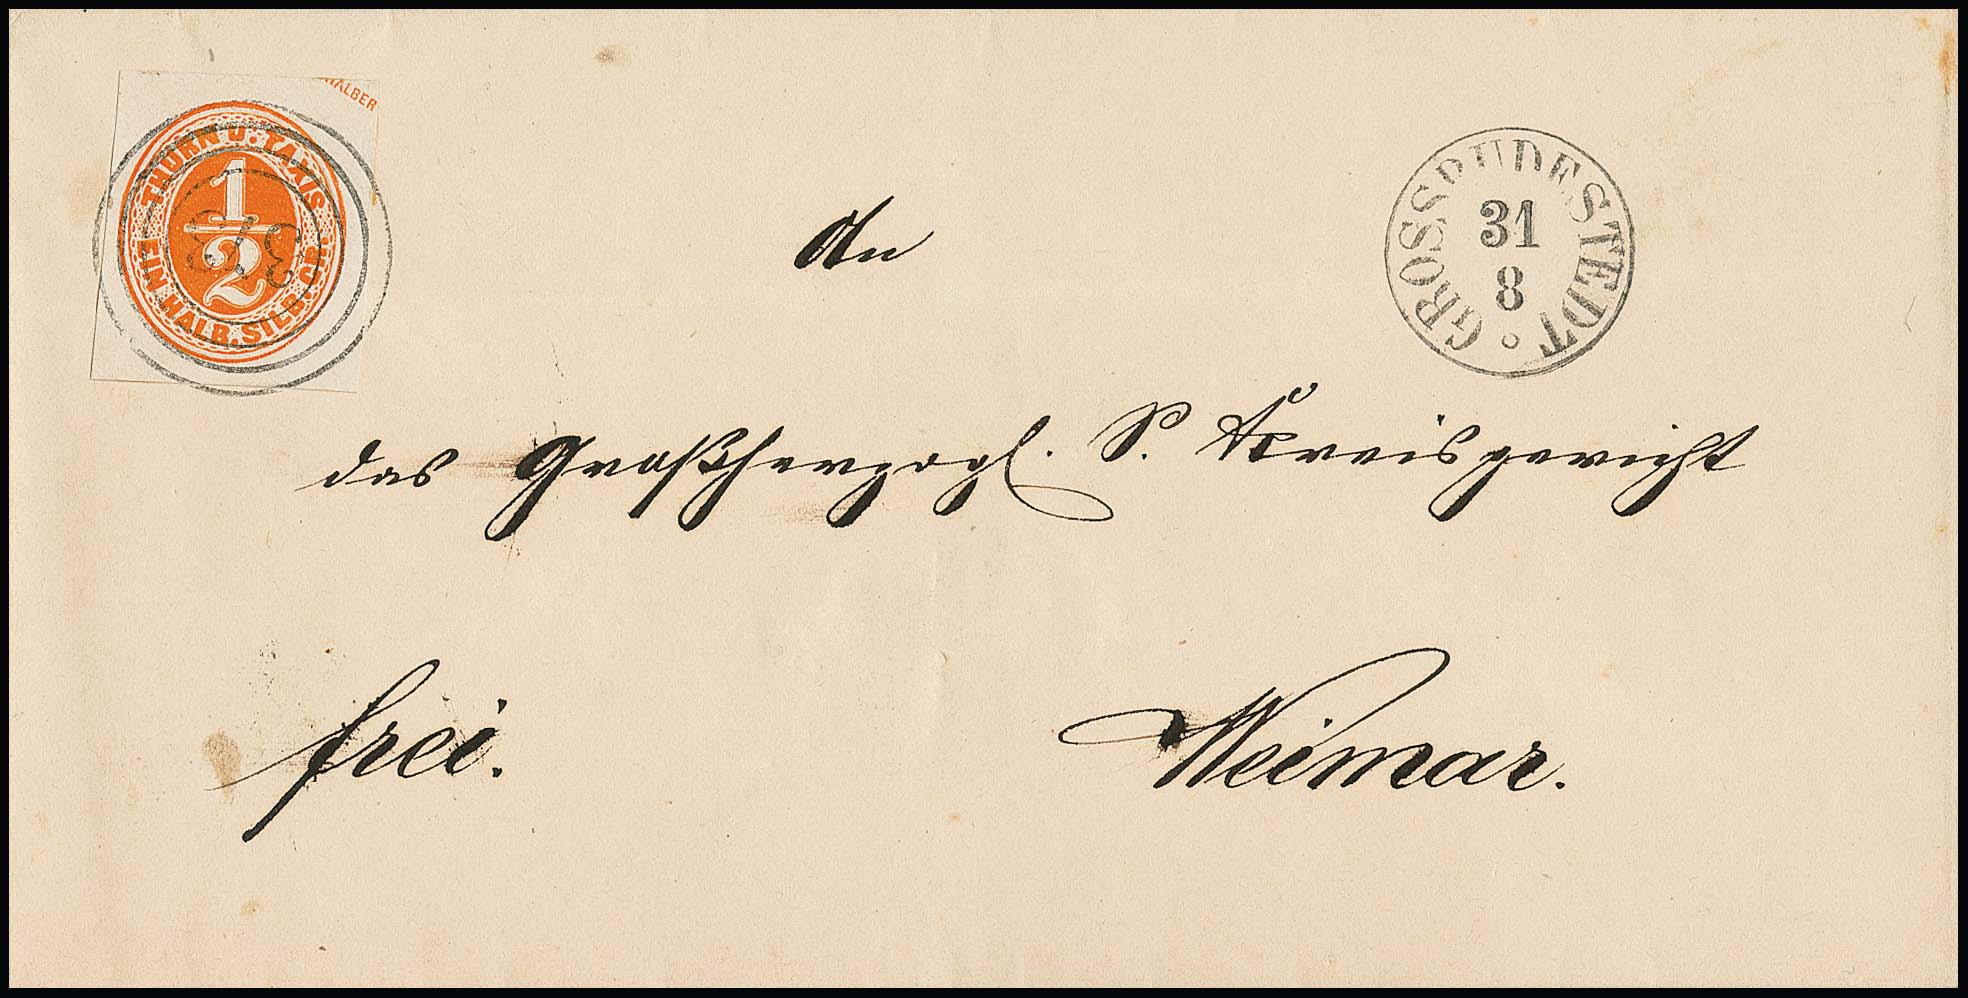 HALBER
THURN U. TAXIS.
1/2
EIN HALB. SILB. GR.
373
GROSSRUDESTEDT
31
8
An
das Großherzogl. S. Kreisgericht
frei.
Weimar.